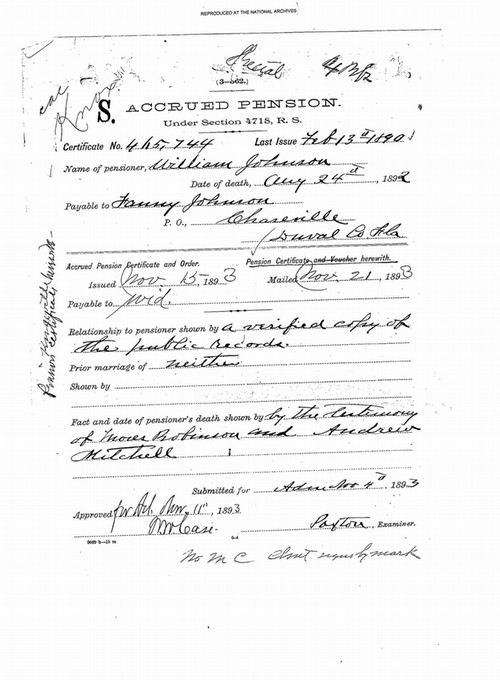 REPRODUCED AT THE NATIONAL ARCHIVES
Special
(3—562.)
S. ACCRUED PENSION.
Under Section 4718, R. S.
Certificate No. 465,744 Last Issue Feb 13" 1890
Name of pensioner, William Johnson
Date of death, Aug 24", 1892
Payable to Fanny Johnson
P. O., Chaseville
Duval Co. Fla
Accrued Pension Certificate and Order. Pension Certificate and Voucher herewith.
Issued Nov. 15, 1893 Mailed Nov. 21, 1893
Payable to wid.
Relationship to pensioner shown by a verified copy of
the public records.
Prior marriage of neither
Shown by
Fact and date of pensioner's death shown by by the testimony
of Moses Robinson and Andrew
Mitchell
Submitted for Adm Nov 4", 1893
Approved for Ad. Nov. 11", 1893
Case. Paxton, Examiner.
No M C Clmt signs by mark